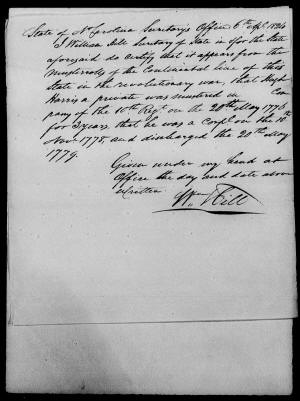 State of No Carolina Secretary's Office 6th Apl. 1824
I William Hill Secretary of State in & for the State
aforesaid do certify that it appears from the
musterrolls of the Continental line of this
State in the revolutionary war, that Hugh
Harris a private was mustered in Com
pany of the 10th Regt on the 20th May 1776
for 3 years that he was a Corpl on the 10th
Nov. 1778, and discharged the 20th May
1779.
Given under my hand at
Office the day and date above
written
Wm Hill